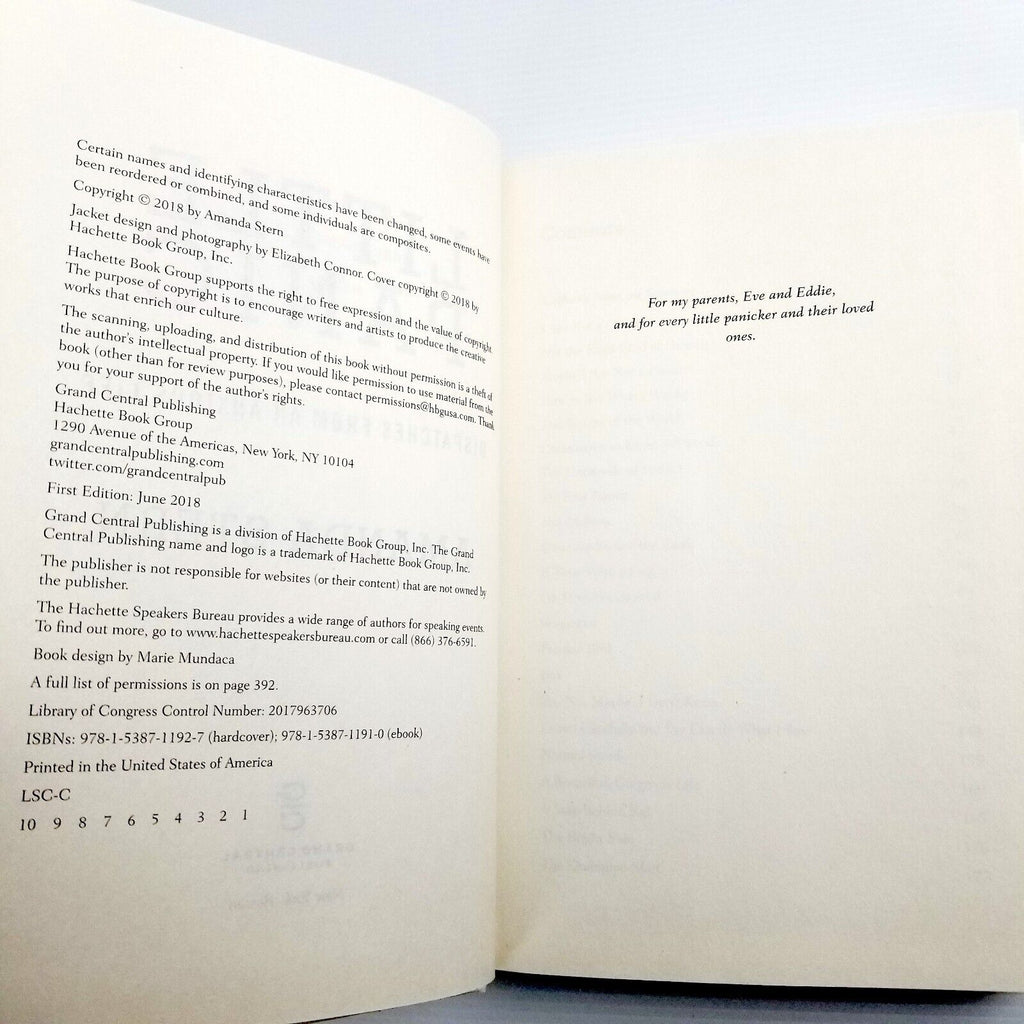 Certain names and identifying characteristics have been changed, some events have
been reordered or combined, and some individuals are composites.
Copyright © 2018 by Amanda Stern
Jacket design and photography by Elizabeth Connor. Cover copyright © 2018 by
Hachette Book Group, Inc.
Hachette Book Group supports the right to free expression and the value of copyright.
The purpose of copyright is to encourage writers and artists to produce the creative
works that enrich our culture.
The scanning, uploading, and distribution of this book without permission is a theft of
the author's intellectual property. If you would like permission to use material from the
book (other than for review purposes), please contact permissions@hbgusa.com. Thank
you for your support of the author's rights.
Grand Central Publishing
Hachette Book Group
1290 Avenue of the Americas, New York, NY 10104
grandcentralpublishing.com
twitter.com/grandcentralpub
First Edition: June 2018
Grand Central Publishing is a division of Hachette Book Group, Inc. The Grand
Central Publishing name and logo is a trademark of Hachette Book Group, Inc.
The publisher is not responsible for websites (or their content) that are not owned by
the publisher.
The Hachette Speakers Bureau provides a wide range of authors for speaking events.
To find out more, go to www.hachettespeakersbureau.com or call (866) 376-6591.
Book design by Marie Mundaca
A full list of permissions is on page 392.
Library of Congress Control Number: 2017963706
ISBNs: 978-1-5387-1192-7 (hardcover); 978-1-5387-1191-0 (ebook)
Printed in the United States of America
LSC-C
10 9 8 7 6 5 4 3 2 1
For my parents, Eve and Eddie,
and for every little panicker and their loved
ones.